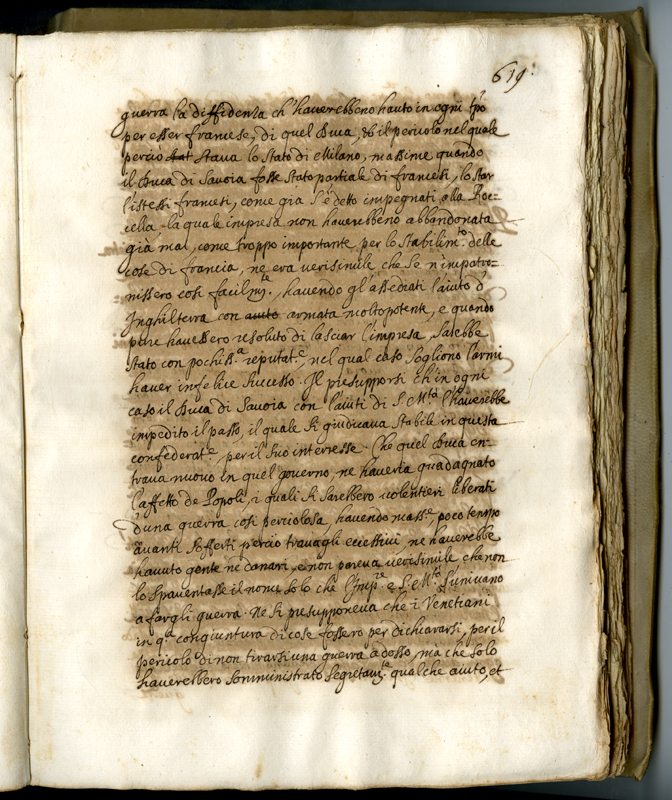 619.
guerra la diffidenza ch'haverebbeno hauto in ogni tpo
per esser francese, di quel Duca, & il pericolo nel quale
perciò stava lo Stato di Milano, massime quando
il Duca di Savoia fosse stato partiale di francesi, lo star
l'istessi francesi, come già s'è detto impegnati alla Roc=
cella la quale impresa non haverebbeno abbandonata
già mai, come troppo importante per lo stabilimto delle
cose di francia, ne era verisimile che se n'impatro=
nissero così facilmte, havendo gl'assediati l'aiuto d'
Inghilterra con aiuto armata molto potente, e quando
pure havessero resoluto di lasciar l'impresa, sarebbe
stato con pochissa reputate, nel qual caso sogliono l'armi
haver infelice successo. Il presupporsi ch'in ogni
caso il Duca di Savoia con l'aiuti di S. Mtà l'haverebbe
impedito il passo, il quale si giudicava stabile in questa
confederate, per il suo interesse. Che quel Duca en=
trava nuovo in quel governo, ne haveria guadagnato
l'affetto de Popoli, i quali si sarebbero volentieri liberati
d'una guerra così pericolosa, havendo masse, poco tempo
avanti sofferti perciò travagli eccessivi ne haverebbe
havuto gente ne danari, e non pareva verisimile che non
lo spaventasse il nome solo che l'Impre e S. Mtà s'univano
a fargli guerra. Ne si presupponeva che i Venetiani
in qta congiuntura di cose fossero per dichiararsi, per il
pericolo di non tirarsi una guerra adosso, mà che solo
haverebbero somministrato segretamte qualche aiuto, et